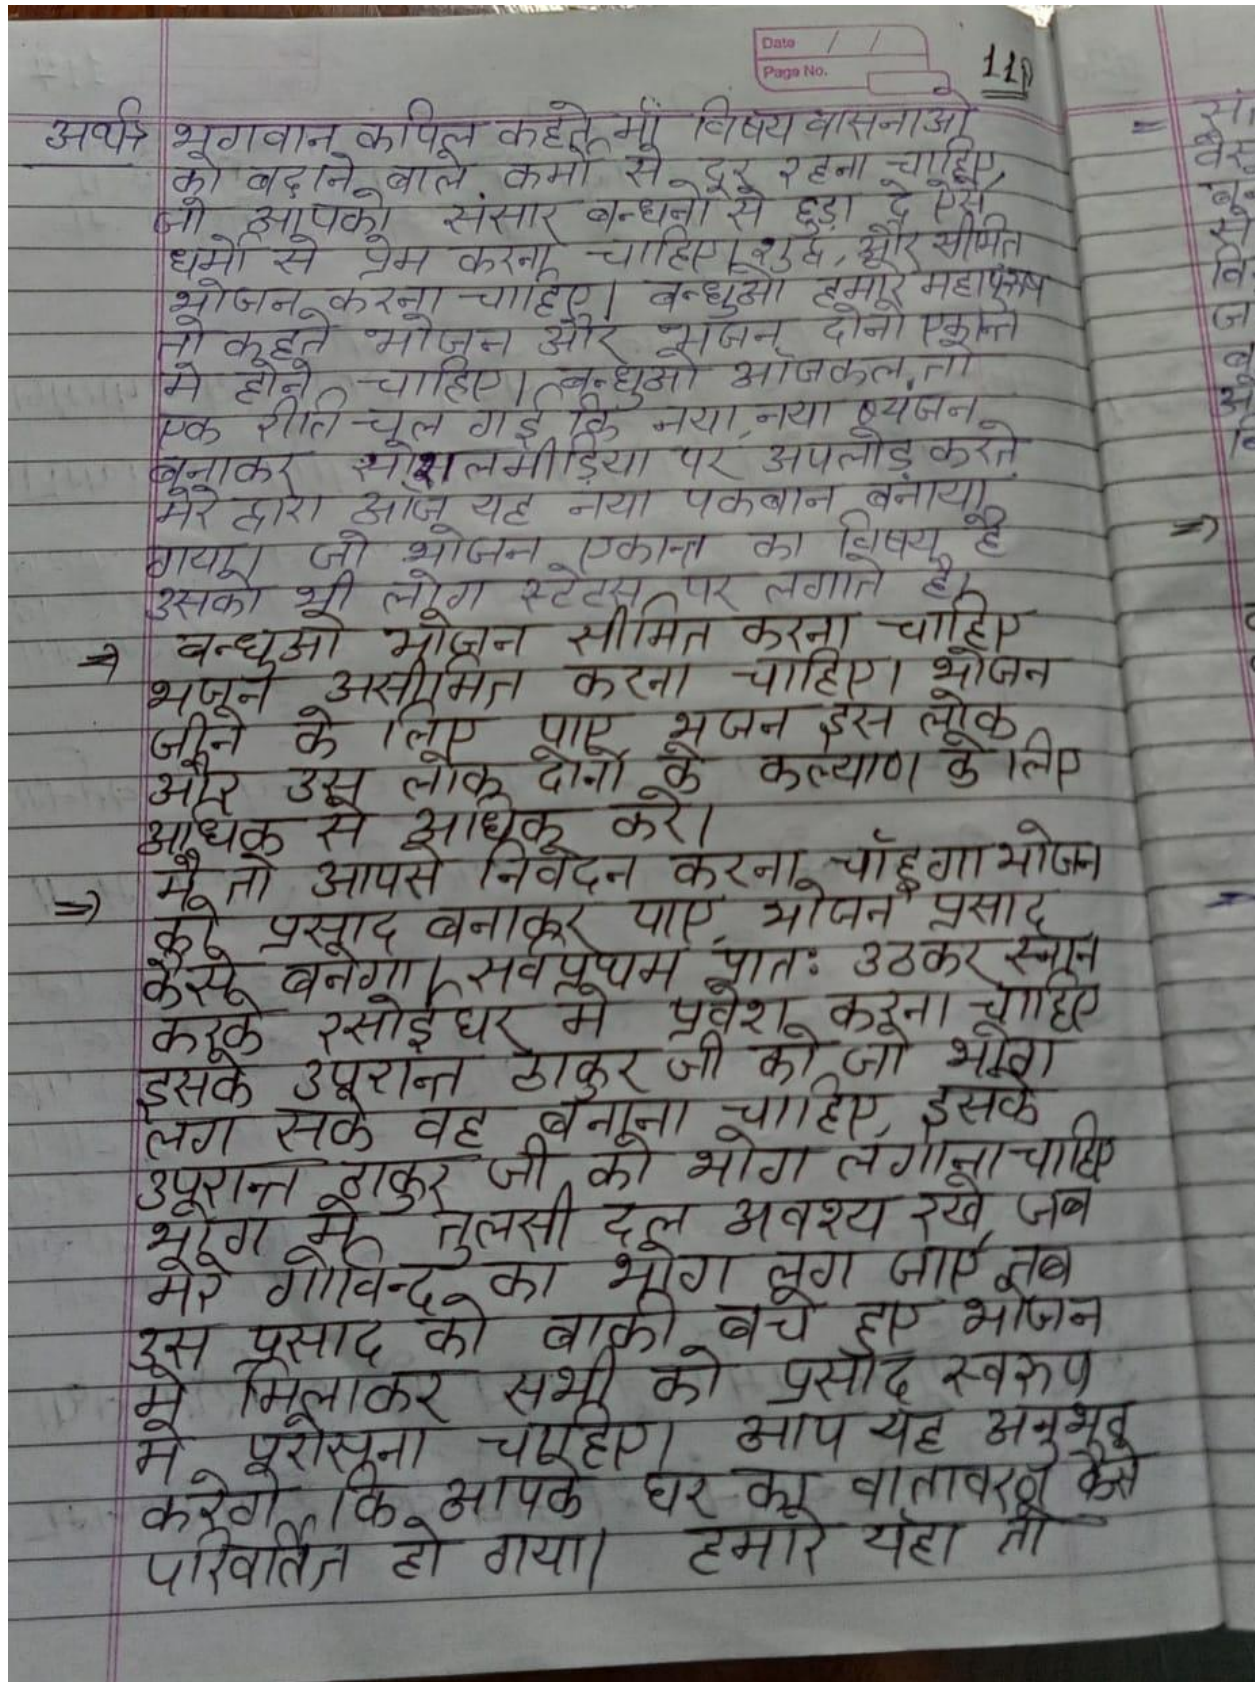 Date / /
Page No.
11
अर्थात् भगवान कपिल कहते माँ विषय वासनाओ
को बढाने वाले कर्मो से दूर रहना चाहिए,
जो आपको संसार बन्धनो से छुड़ा दे ऐसे
धर्मो से प्रेम करना चाहिए। शुद्ध, और सीमित
भोजन करना चाहिए। बन्धुओ हमारे महापुरुष
तो कहते भोजन और भजन दोनो एकान्त
मे होने चाहिए। बन्धुओ आजकल तो
एक रीति चल गई कि नया नया व्यंजन
बनाकर सोशलमीडिया पर अपलोड़ करते
मेरे द्वारा आज यह नया पकबान बनाया
गया। जो भोजन एकान्त का विषय है
उसको भी लोग स्टेटस पर लगाते है।
⇒ बन्धुओ भोजन सीमित करना चाहिए
भजन असीमित करना चाहिए। भोजन
जीने के लिए पाए भजन इस लोक
और उस लोक दोनो के कल्याण के लिए
अधिक से अधिक करे।
⇒ मै तो आपसे निवेदन करना चाँहूगा भोजन
को प्रसाद बनाकर पाए, भोजन प्रसाद
कैसे बनेगा। सर्वप्रथम प्रातः उठकर स्नान
करके रसोईघर मे प्रवेश करना चाहिए
इसके उपरान्त ठाकुर जी को जो भोग
लग सके वह बनाना चाहिए, इसके
उपरान्त ठाकुर जी को भोग लगाना चाहिए
भोग मे तुलसी दल अवश्य रखे, जब
मेरे गोविन्द का भोग लग जाए तब
उस प्रसाद को बाकी बचे हुए भोजन
मे मिलाकर सभी को प्रसाद स्वरुप
मे परोसना चाहिए। आप यह अनुभव
करेगे कि आपके घर का वातावरण कैसे
परिवर्तित हो गया। हमारे यहा तो